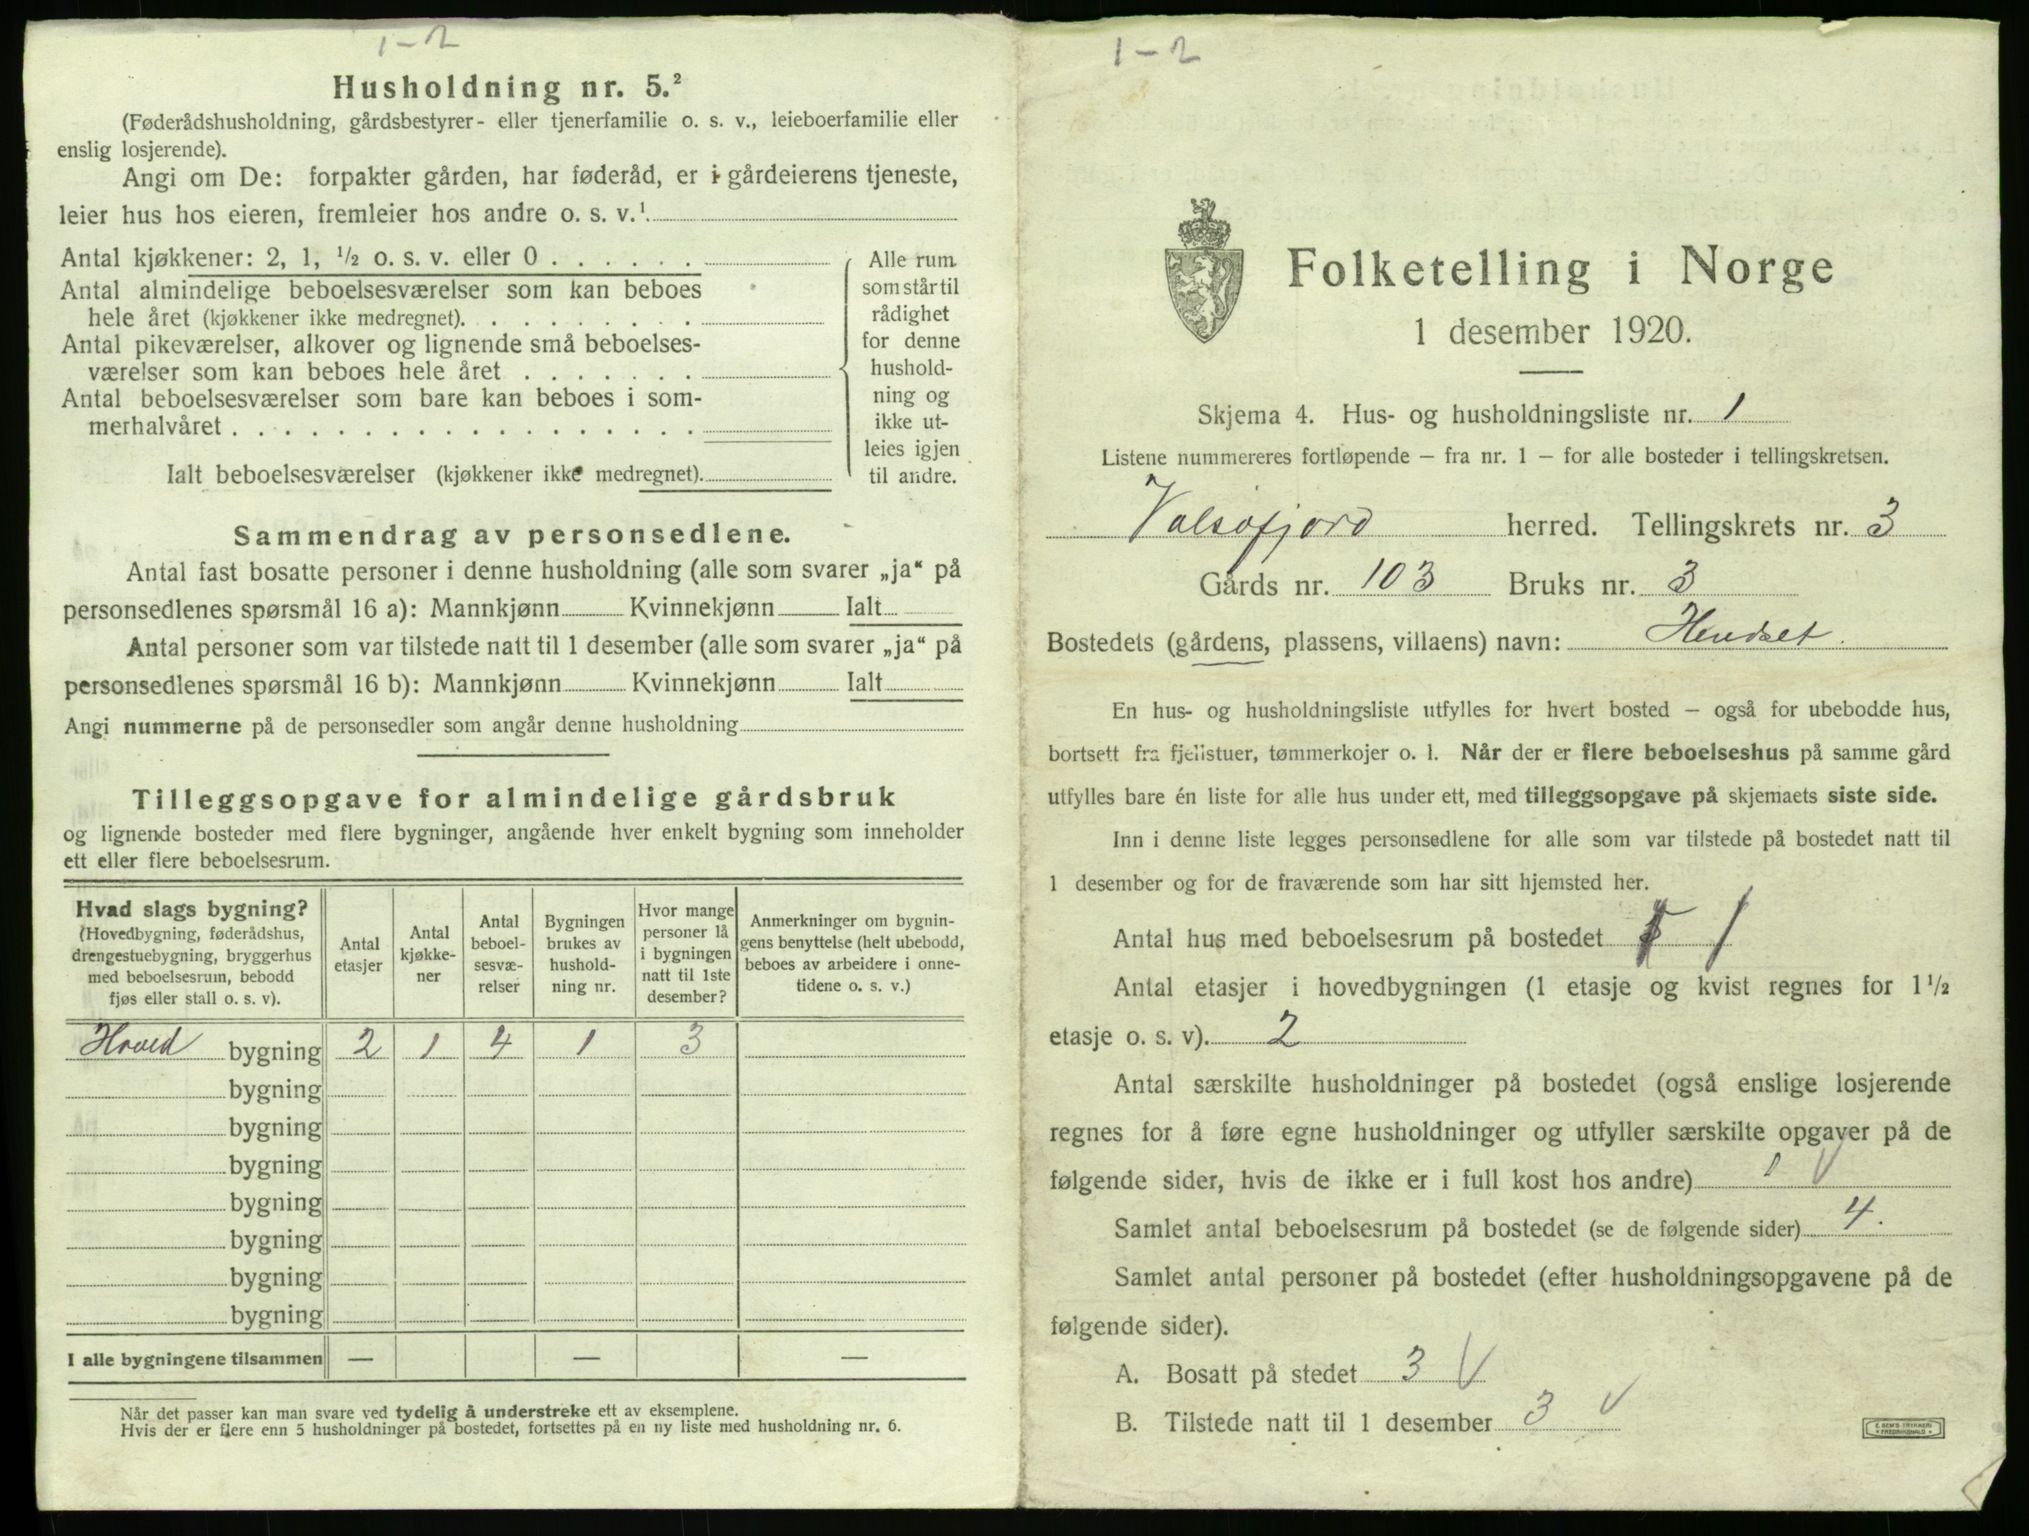 1-2
Husholdning nr. 5.²
(Føderådshusholdning, gårdsbestyrer- eller tjenerfamilie o. s. v., leieboerfamilie eller
enslig losjerende).
Angi om De: forpakter gården, har føderåd, er i gårdeierens tjeneste,
leier hus hos eieren, fremleier hos andre o. s. v.¹
Antal kjøkkener: 2, 1, ½ o. s. v. eller 0
Antal almindelige beboelsesværelser som kan beboes
hele året (kjøkkener ikke medregnet).
Antal pikeværelser, alkover og lignende små beboelses-
værelser som kan beboes hele året
Antal beboelsesværelser som bare kan beboes i som-
merhalvåret
Ialt beboelsesværelser (kjøkkener ikke medregnet).
Alle rum
som står til
rådighet
for denne
hushold-
ning og
ikke ut-
leies igjen
til andre.
Sammendrag av personsedlene.
Antal fast bosatte personer i denne husholdning (alle som svarer „ja“ på
personsedlenes spørsmål 16 a): Mannkjønn Kvinnekjønn Ialt
Antal personer som var tilstede natt til 1 desember (alle som svarer „ja“ på
personsedlenes spørsmål 16 b): Mannkjønn Kvinnekjønn Ialt
Angi nummerne på de personsedler som angår denne husholdning
Tilleggsopgave for almindelige gårdsbruk
og lignende bosteder med flere bygninger, angående hver enkelt bygning som inneholder
ett eller flere beboelsesrum.
Hvad slags bygning?
(Hovedbygning, føderådshus,
drengestuebygning, bryggerhus
med beboelsesrum, bebodd
fjøs eller stall o. s. v).
Antal
etasjer
Antal
kjøkke-
ner
Antal
beboel-
sesvæ-
relser
Bygningen
brukes av
hushold-
ning nr.
Hvor mange
personer lå
i bygningen
natt til 1ste
desember?
Anmerkninger om bygnin-
gens benyttelse (helt ubebodd,
beboes av arbeidere i onne-
tidene o. s. v.)
Hoved bygning 2 1 4 1 3
bygning
bygning
bygning
bygning
bygning
bygning
bygning
I alle bygningene tilsammen — — —
Når det passer kan man svare ved tydelig å understreke ett av eksemplene.
Hvis der er flere enn 5 husholdninger på bostedet, fortsettes på en ny liste med husholdning nr. 6.
1-2
Folketelling i Norge
1 desember 1920.
Skjema 4. Hus- og husholdningsliste nr. 1
Listene nummereres fortløpende – fra nr. 1 – for alle bosteder i tellingskretsen.
Valsøfjord herred. Tellingskrets nr. 3
Gårds nr. 103 Bruks nr. 3
Bostedets (gårdens, plassens, villaens) navn: Hendset.
En hus- og husholdningsliste utfylles for hvert bosted – også for ubebodde hus,
bortsett fra fjellstuer, tømmerkojer o. l. Når der er flere beboelseshus på samme gård
utfylles bare én liste for alle hus under ett, med tilleggsopgave på skjemaets siste side.
Inn i denne liste legges personsedlene for alle som var tilstede på bostedet natt til
1 desember og for de fraværende som har sitt hjemsted her.
Antal hus med beboelsesrum på bostedet 1
Antal etasjer i hovedbygningen (1 etasje og kvist regnes for 1½
etasje o. s. v). 2
Antal særskilte husholdninger på bostedet (også enslige losjerende
regnes for å føre egne husholdninger og utfyller særskilte opgaver på de
følgende sider, hvis de ikke er i full kost hos andre) 1 V
Samlet antal beboelsesrum på bostedet (se de følgende sider) 4.
Samlet antal personer på bostedet (efter husholdningsopgavene på de
følgende sider).
A. Bosatt på stedet 3 V
B. Tilstede natt til 1 desember 3 V
E. SEM'S TRYKKERI
FREDRIKSHALD